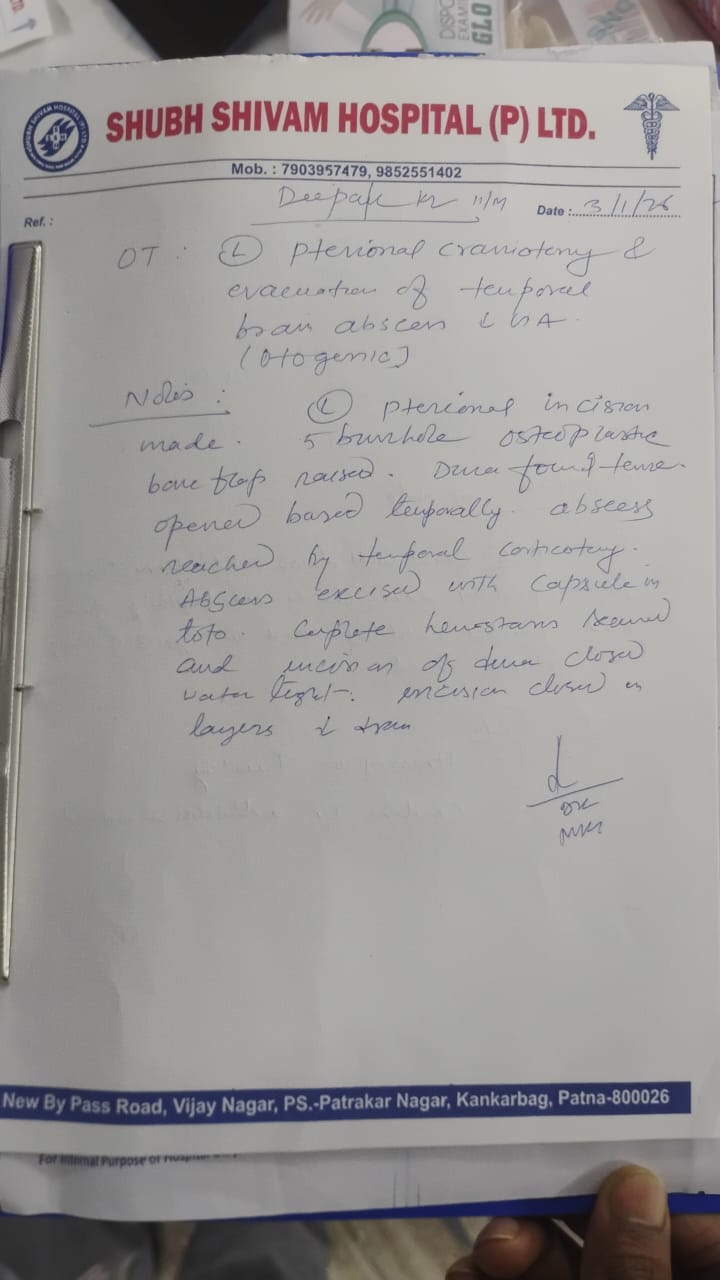 DISPO
EXAMI
GLO
SHUBH SHIVAM HOSPITAL (P) LTD.
Mob. : 7903957479, 9852551402
Deepak Kr 11/M
Ref. :
Date : 3/1/26
OT : (L) pterional craniotomy &
evacuation of temporal
brain abscess GA
(Otogenic)
Notes :
(L) pterional incision
made. 5 burrhole osteoplastic
bone flap raised. Dura found tense.
opened based temporally. abscess
reached by temporal corticotomy.
Abscess excised with capsule in
toto. Complete hemostasis secured
and incision of dura closed
water tight. incision closed in
layers drain
New By Pass Road, Vijay Nagar, PS.-Patrakar Nagar, Kankarbag, Patna-800026
For Internal Purpose of